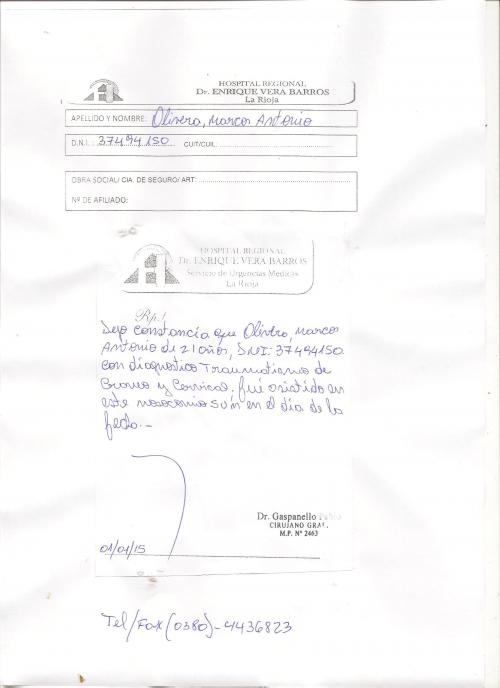 HOSPITAL REGIONAL
Dr. ENRIQUE VERA BARROS
La Rioja
APELLIDO Y NOMBRE: Olivero, Marcos Antonio
D.N.I.: 37494150 CUIT/CUIL:
OBRA SOCIAL/ CIA. DE SEGURO/ ART:
Nº DE AFILIADO:
HOSPITAL REGIONAL
Dr. ENRIQUE VERA BARROS
Servicio de Urgencias Medicas
La Rioja
Rp./
Dejo constancia que Olivero, Marcos
Antonio de 21 años, DNI: 37494150
con diagnostico Traumatismo de
Craneo y Cervical, fué asistido en
este nosocomio en el día de la
fecha.-
Dr. Gaspanello Pablo
CIRUJANO GRAL.
M.P. Nº 2463
01/01/15
Tel/Fax (0380)-4436823